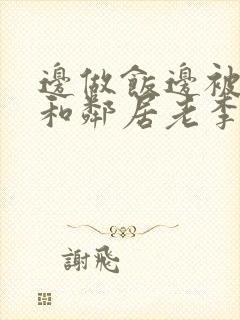 邊做飯邊被
和鄰居老李
謝飛